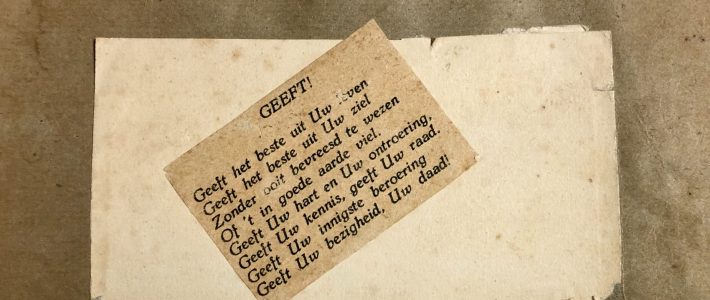 GEEFT!
Geeft het beste uit Uw leven
Geeft het beste uit Uw ziel
Zonder ooit bevreesd te wezen
Of 't in goede aarde viel.
Geeft Uw hart en Uw ontroering,
Geeft Uw kennis, geeft Uw raad.
Geeft Uw innigste beroering
Geeft Uw bezigheid, Uw daad!